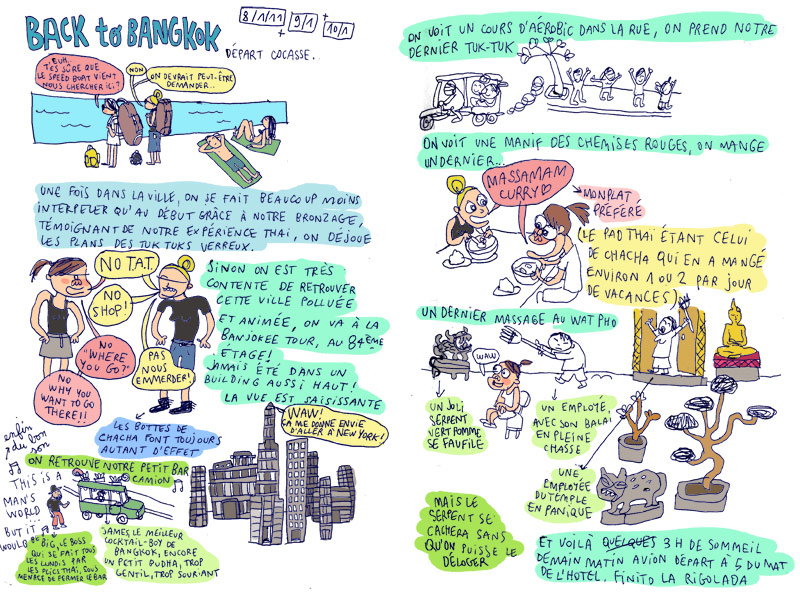 BACK to BANGKOK
8/1/11 + 9/1 + 10/1
DÉPART COCASSE..
EUH,
T'ES SÛRE QUE
LE SPEED BOAT VIENT
NOUS CHERCHER ICI?
NON
ON DEVRAIT PEUT-ÊTRE
DEMANDER..
UNE FOIS DANS LA VILLE, ON SE FAIT BEAUCOUP MOINS
INTERPELER QU'AU DÉBUT GRÂCE À NOTRE BRONZAGE,
TÉMOIGNANT DE NOTRE EXPÉRIENCE THAI, ON DÉJOUE
LES PLANS DES TUK TUKS VERREUX.
NO T.A.T.
NO
SHOP!
NO
"WHERE
YOU GO?"
NO
WHY YOU
WANT TO GO
THERE!!
PAS
NOUS
EMMERDER!
SINON ON EST TRÈS
CONTENTE DE RETROUVER
CETTE VILLE POLLUÉE
ET ANIMÉE, ON VA À LA
BANJOKEE TOUR, AU 84ÈME
ÉTAGE!
JAMAIS ÉTÉ DANS UN
BUILDING AUSSI HAUT!
LA VUE EST SAISISSANTE
LES BOTTES DE
CHACHA FONT TOUJOURS
AUTANT D'EFFET
WAW!
ÇA ME DONNE ENVIE
D'ALLER À NEW YORK!
enfin
du bon
son
THIS IS A
MAN'S WORLD
BUT IT
WOULD
ON RETROUVE NOTRE PETIT BAR
CAMION
BIG, LE BOSS
QUI SE FAIT TOUS
LES LUNDIS PAR
LES FLICS THAI, SOUS
MENACE DE FERMER LE BAR
SAMES, LE MEILLEUR
COCKTAIL-BOY DE
BANGKOK, ENCORE
UN PETIT BUDHA, TROP
GENTIL, TROP SOURIANT
ON VOIT UN COURS D'AÉROBIC DANS LA RUE, ON PREND NOTRE
DERNIER TUK-TUK
ON VOIT UNE MANIF DES CHEMISES ROUGES, ON MANGE
UN DERNIER...
MASSAMAM
CURRY
MON PLAT
PRÉFÉRÉ
(LE PAD THAI ÉTANT CELUI
DE CHACHA QUI EN A MANGÉ
ENVIRON 1 OU 2 PAR JOUR
DE VACANCES)
UN DERNIER MASSAGE AU WAT PHO
WAW
UN JOLI
SERPENT
VERT POMME
SE FAUFILE
UN EMPLOYÉ,
AVEC SON BALAI
EN PLEINE
CHASSE
UNE
EMPLOYÉE
DU TEMPLE
EN PANIQUE
MAIS LE
SERPENT SE
CACHERA SANS
QU'ON PUISSE LE
DÉLOGER
ET VOILÀ QUELQUES 3 H DE SOMMEIL
DEMAIN MATIN AVION DÉPART À 5 DU MAT
DE L'HOTEL. FINITO LA RIGOLADA